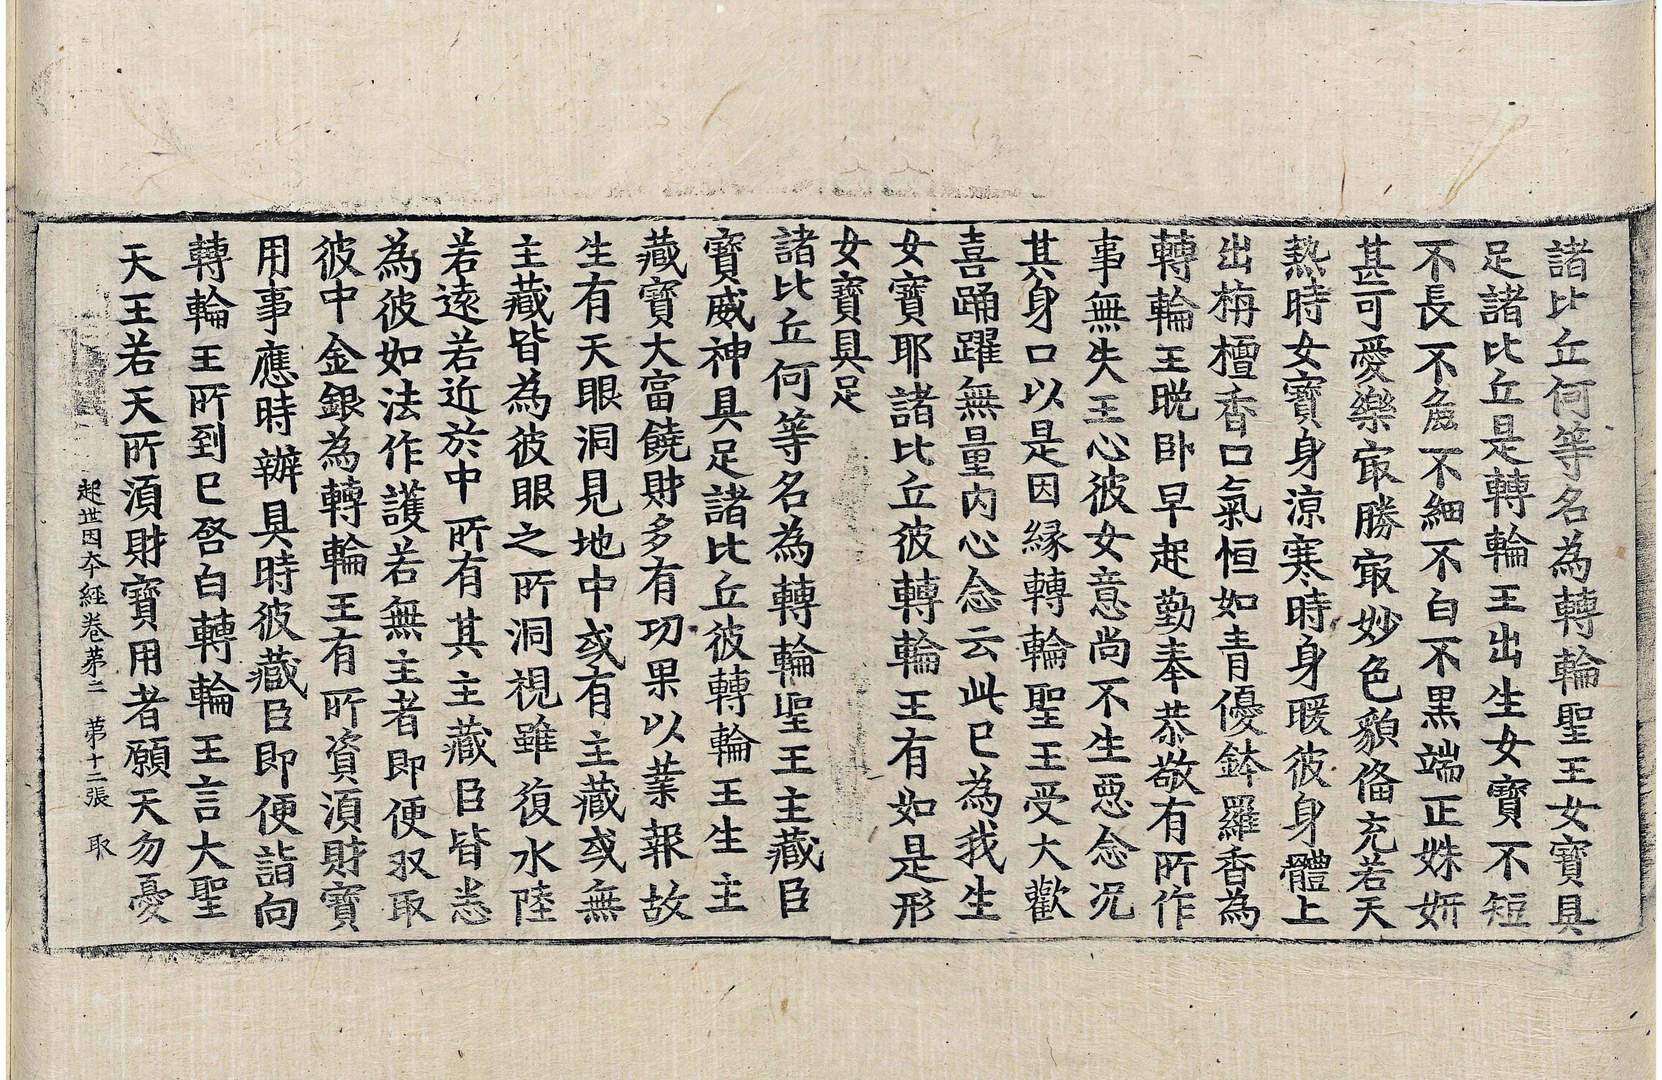 諸比丘何等名為轉輪聖王女寶具
足諸比丘是轉輪王出生女寶不短
不長不麁不細不白不黑端正姝妍
甚可愛樂㝡勝㝡妙色貌俻充若天
熱時女寶身涼寒時身暖彼身體上
出栴檀香口氣恒如青優鉢羅香為
轉輪王晚卧早起勤奉恭敬有所作
事無失王心彼女意尚不生惡念况
其身口以是因縁轉輪聖王受大歡
喜踊躍無量内心念云此已為我生
女寶耶諸比丘彼轉輪王有如是形
女寶具足
諸比丘何等名為轉輪聖王主藏臣
寶威神具足諸比丘彼轉輪王生主
藏寶大富饒財多有功果以業報故
生有天眼洞見地中或有主藏或無
主藏皆為彼眼之所洞視雖復水陸
若遠若近於中所有其主藏臣皆悉
為彼如法作護若無主者即便収取
彼中金銀為轉輪王有所資須財寶
用事應時辦具時彼藏臣即便詣向
轉輪王所到已啓白轉輪王言大聖
天王若天所須財寶用者願天勿憂
起世因本經卷第二　第十二張　取